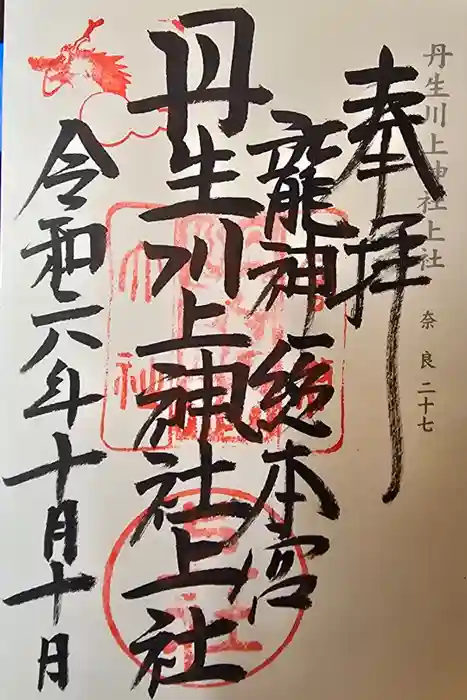 丹生川上神社上社
奈良二十七
奉拝
龍神總本宮
丹生川上神社上社
令和六年十月十日